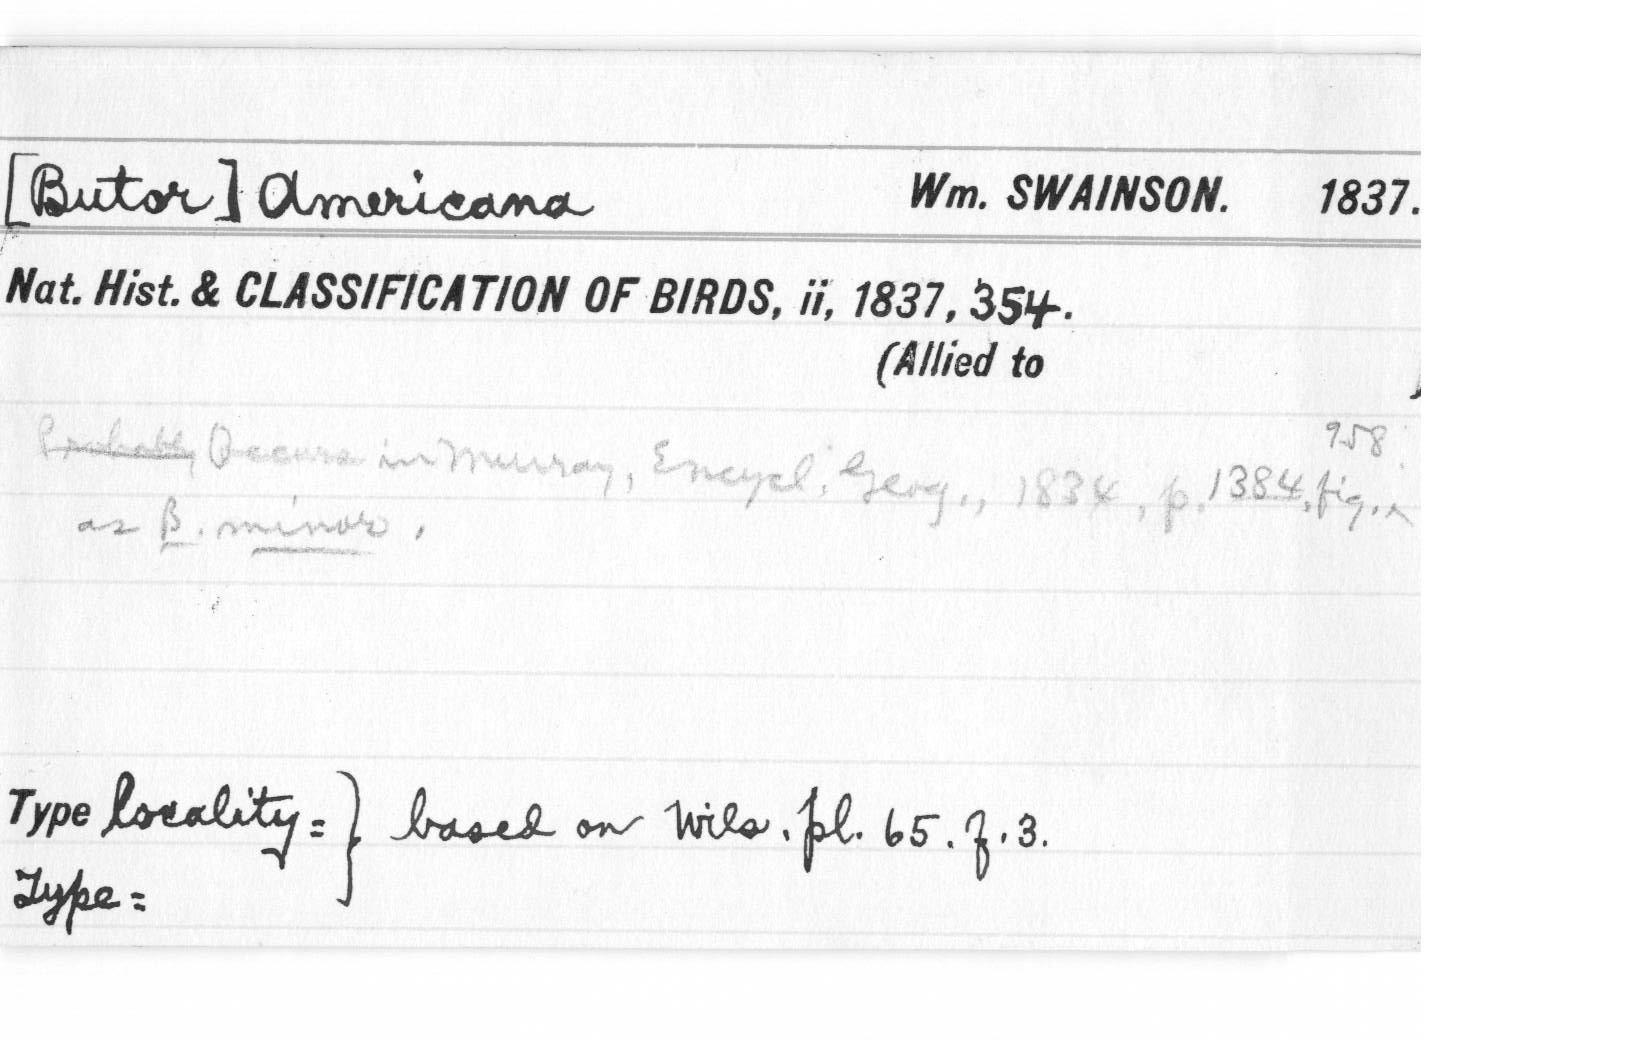 [Butor] Americana Wm. SWAINSON. 1837.
Nat. Hist. & CLASSIFICATION OF BIRDS, ii, 1837, 354.
(Allied to )
Probably Occurs in Murray, Encycl. Geog., 1834, p. 1384, fig. ^ 958
as B. minor.
Type locality = } based on Wils. pl. 65. f. 3.
Type =